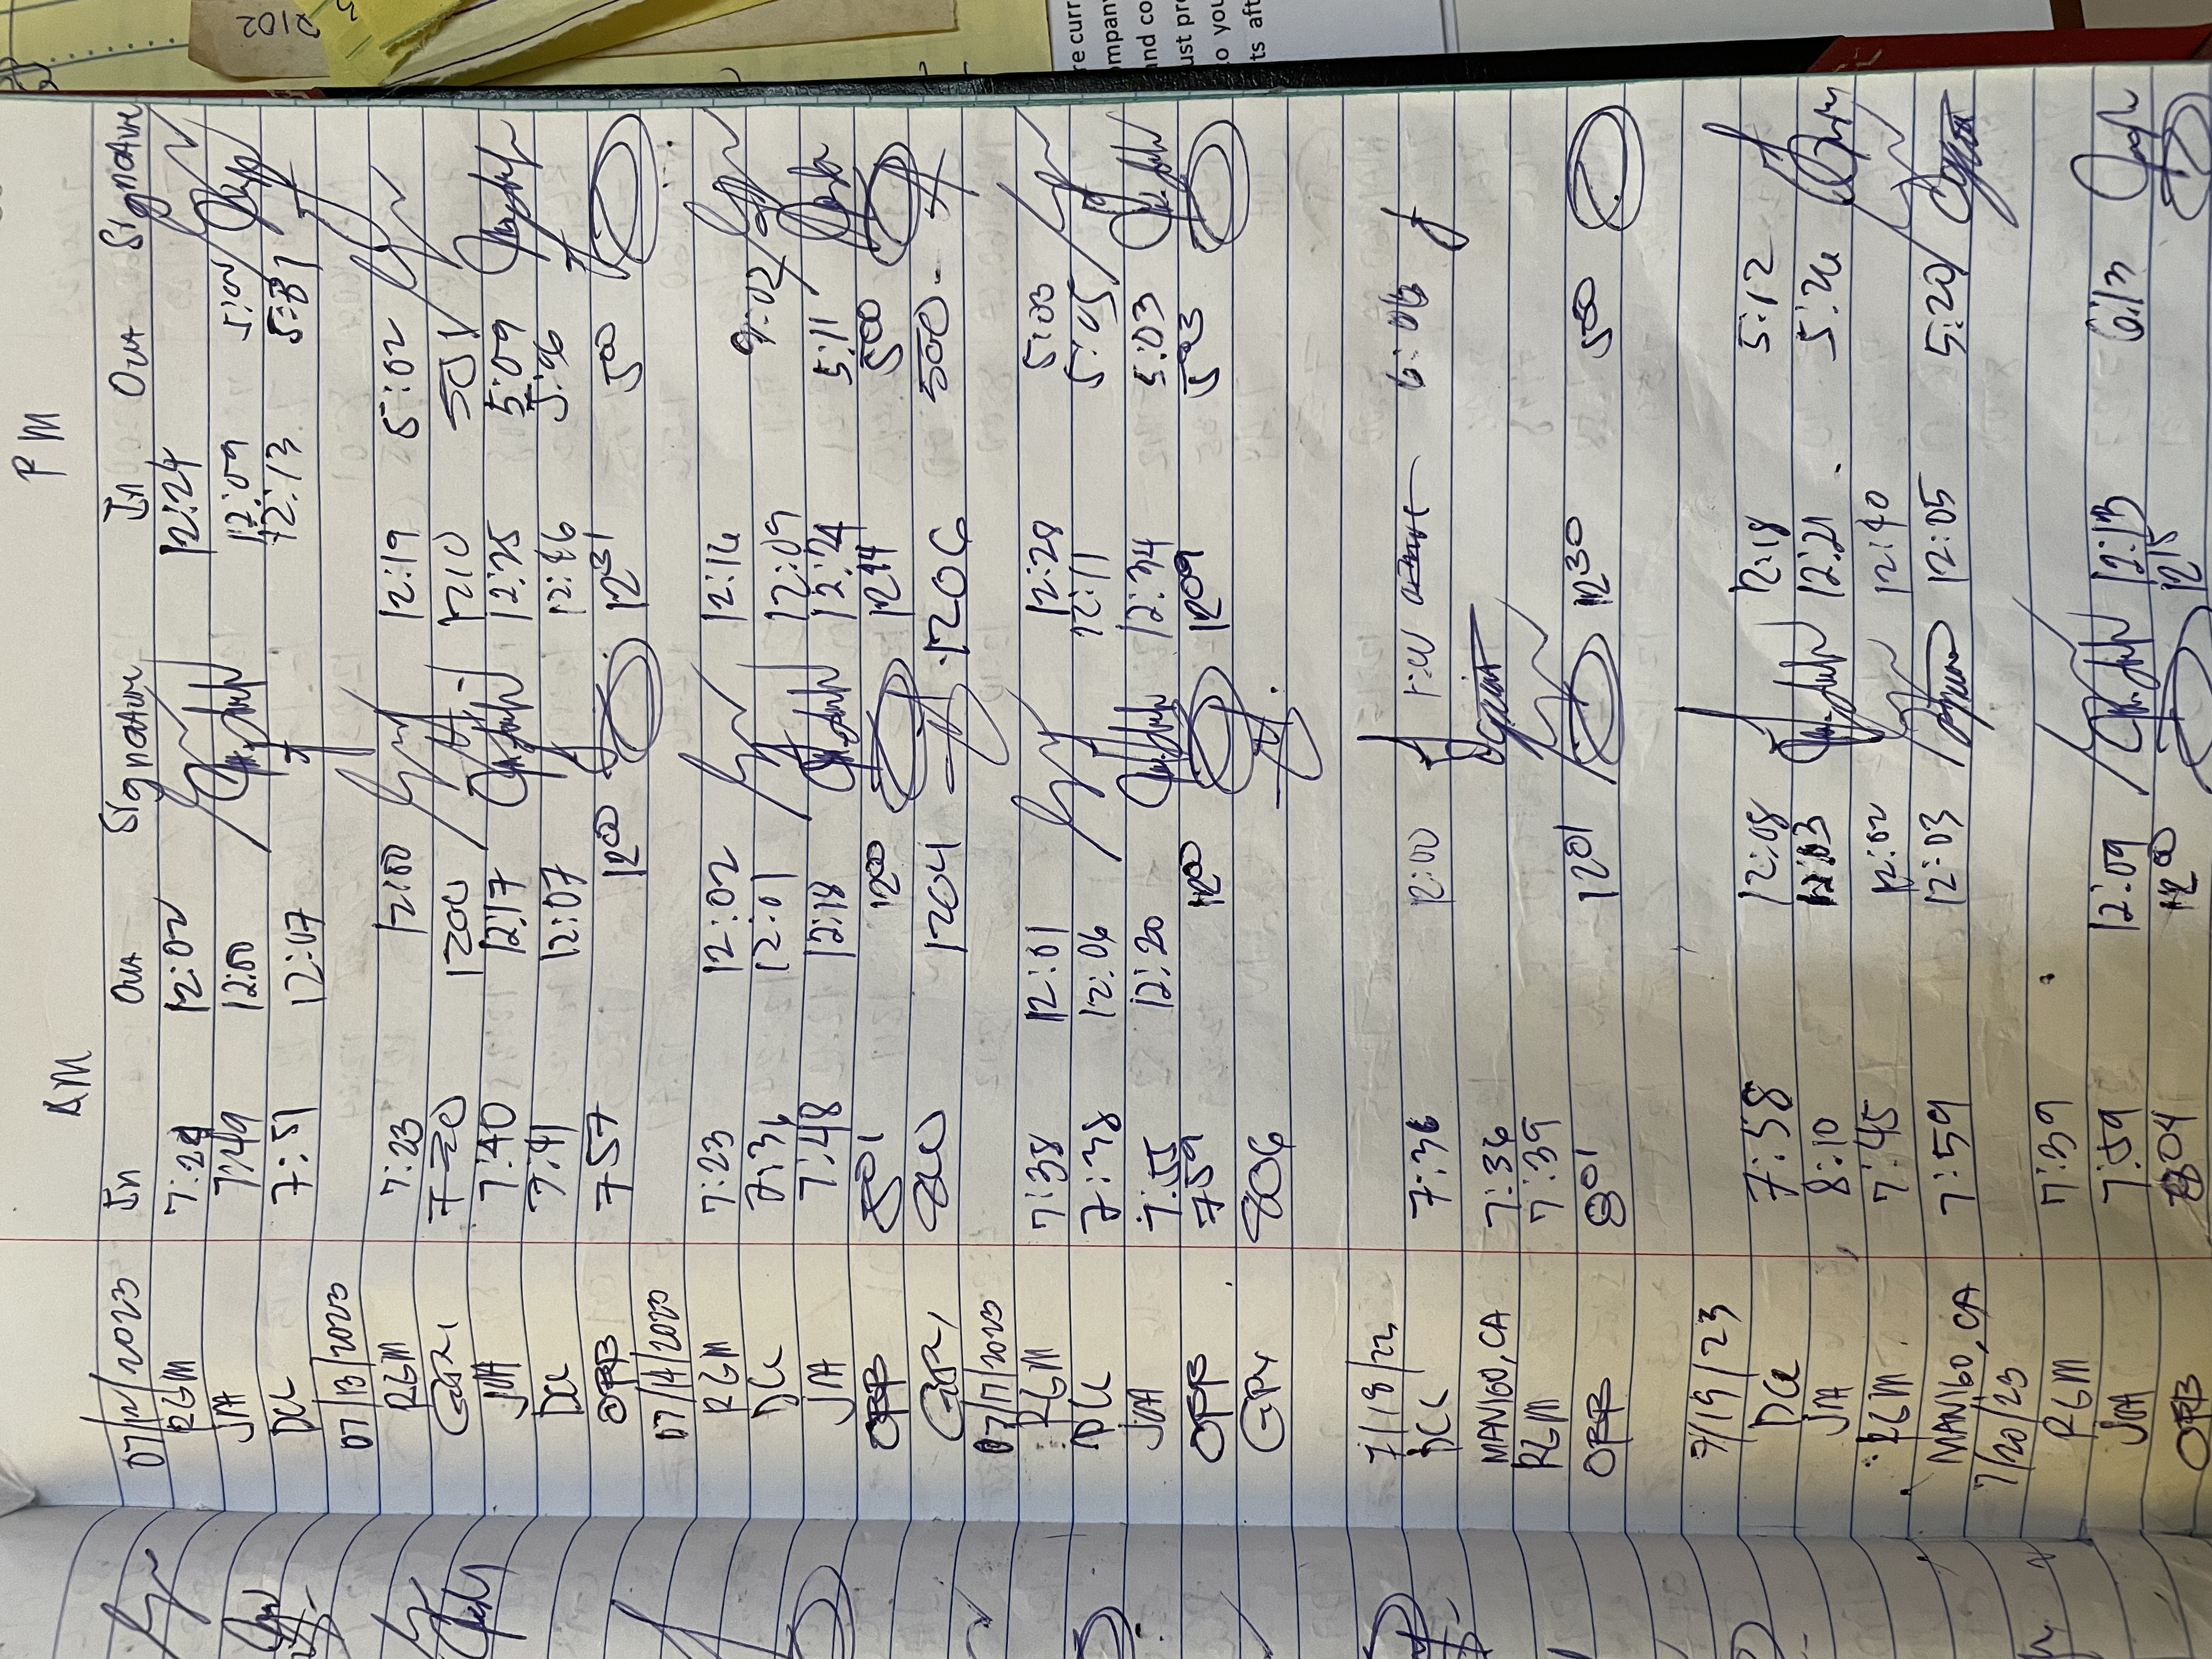 AM PM
In Out Signature In Out Signature
07/12/2023
RGM 7:29 12:02 12:24
JJA 7:49 12:00 12:09
DCL 7:51 12:07 12:13
07/13/2023
RGM 7:23 12:00 12:19 5:02
720 1200 1210 501
JJA 7:40 12:17 12:25 5:09
DCL 7:41 12:07
OPB 757 1200 1231 500
07/14/2023
RGM 7:23 12:02 12:16
DCL 7:36 12:01 12:09 9:02
JJA 7:48 12:18 12:24 5:11
OPB 801 1200 1244 500
800 1204 1206 500
07/17/2023
RGM 7:38 12:01 12:28 5:03
DCL 7:38 12:06 12:11 5:05
JJA 7:55 12:20 12:34 5:03
OPB 759 1200 1209 503
806
DCL 7:36 12:00 1:00
MANIGO, CA 7:36
RGM 7:39
OPB 801 1201 1230 500
7/19/23
DCL 7:58 12:08 12:18 5:12
JJA 8:10 12:03 12:21 5:26
RGM 7:45 12:02 12:40
MANIGO, CA 7:59 12:03 12:05 5:20
7/20/23
RGM 7:39
JJA 7:59 12:09 12:13 6:13
OPB 804 1200 1215
2102
re curr
ompany
and co
ust pro
o you
ts aft